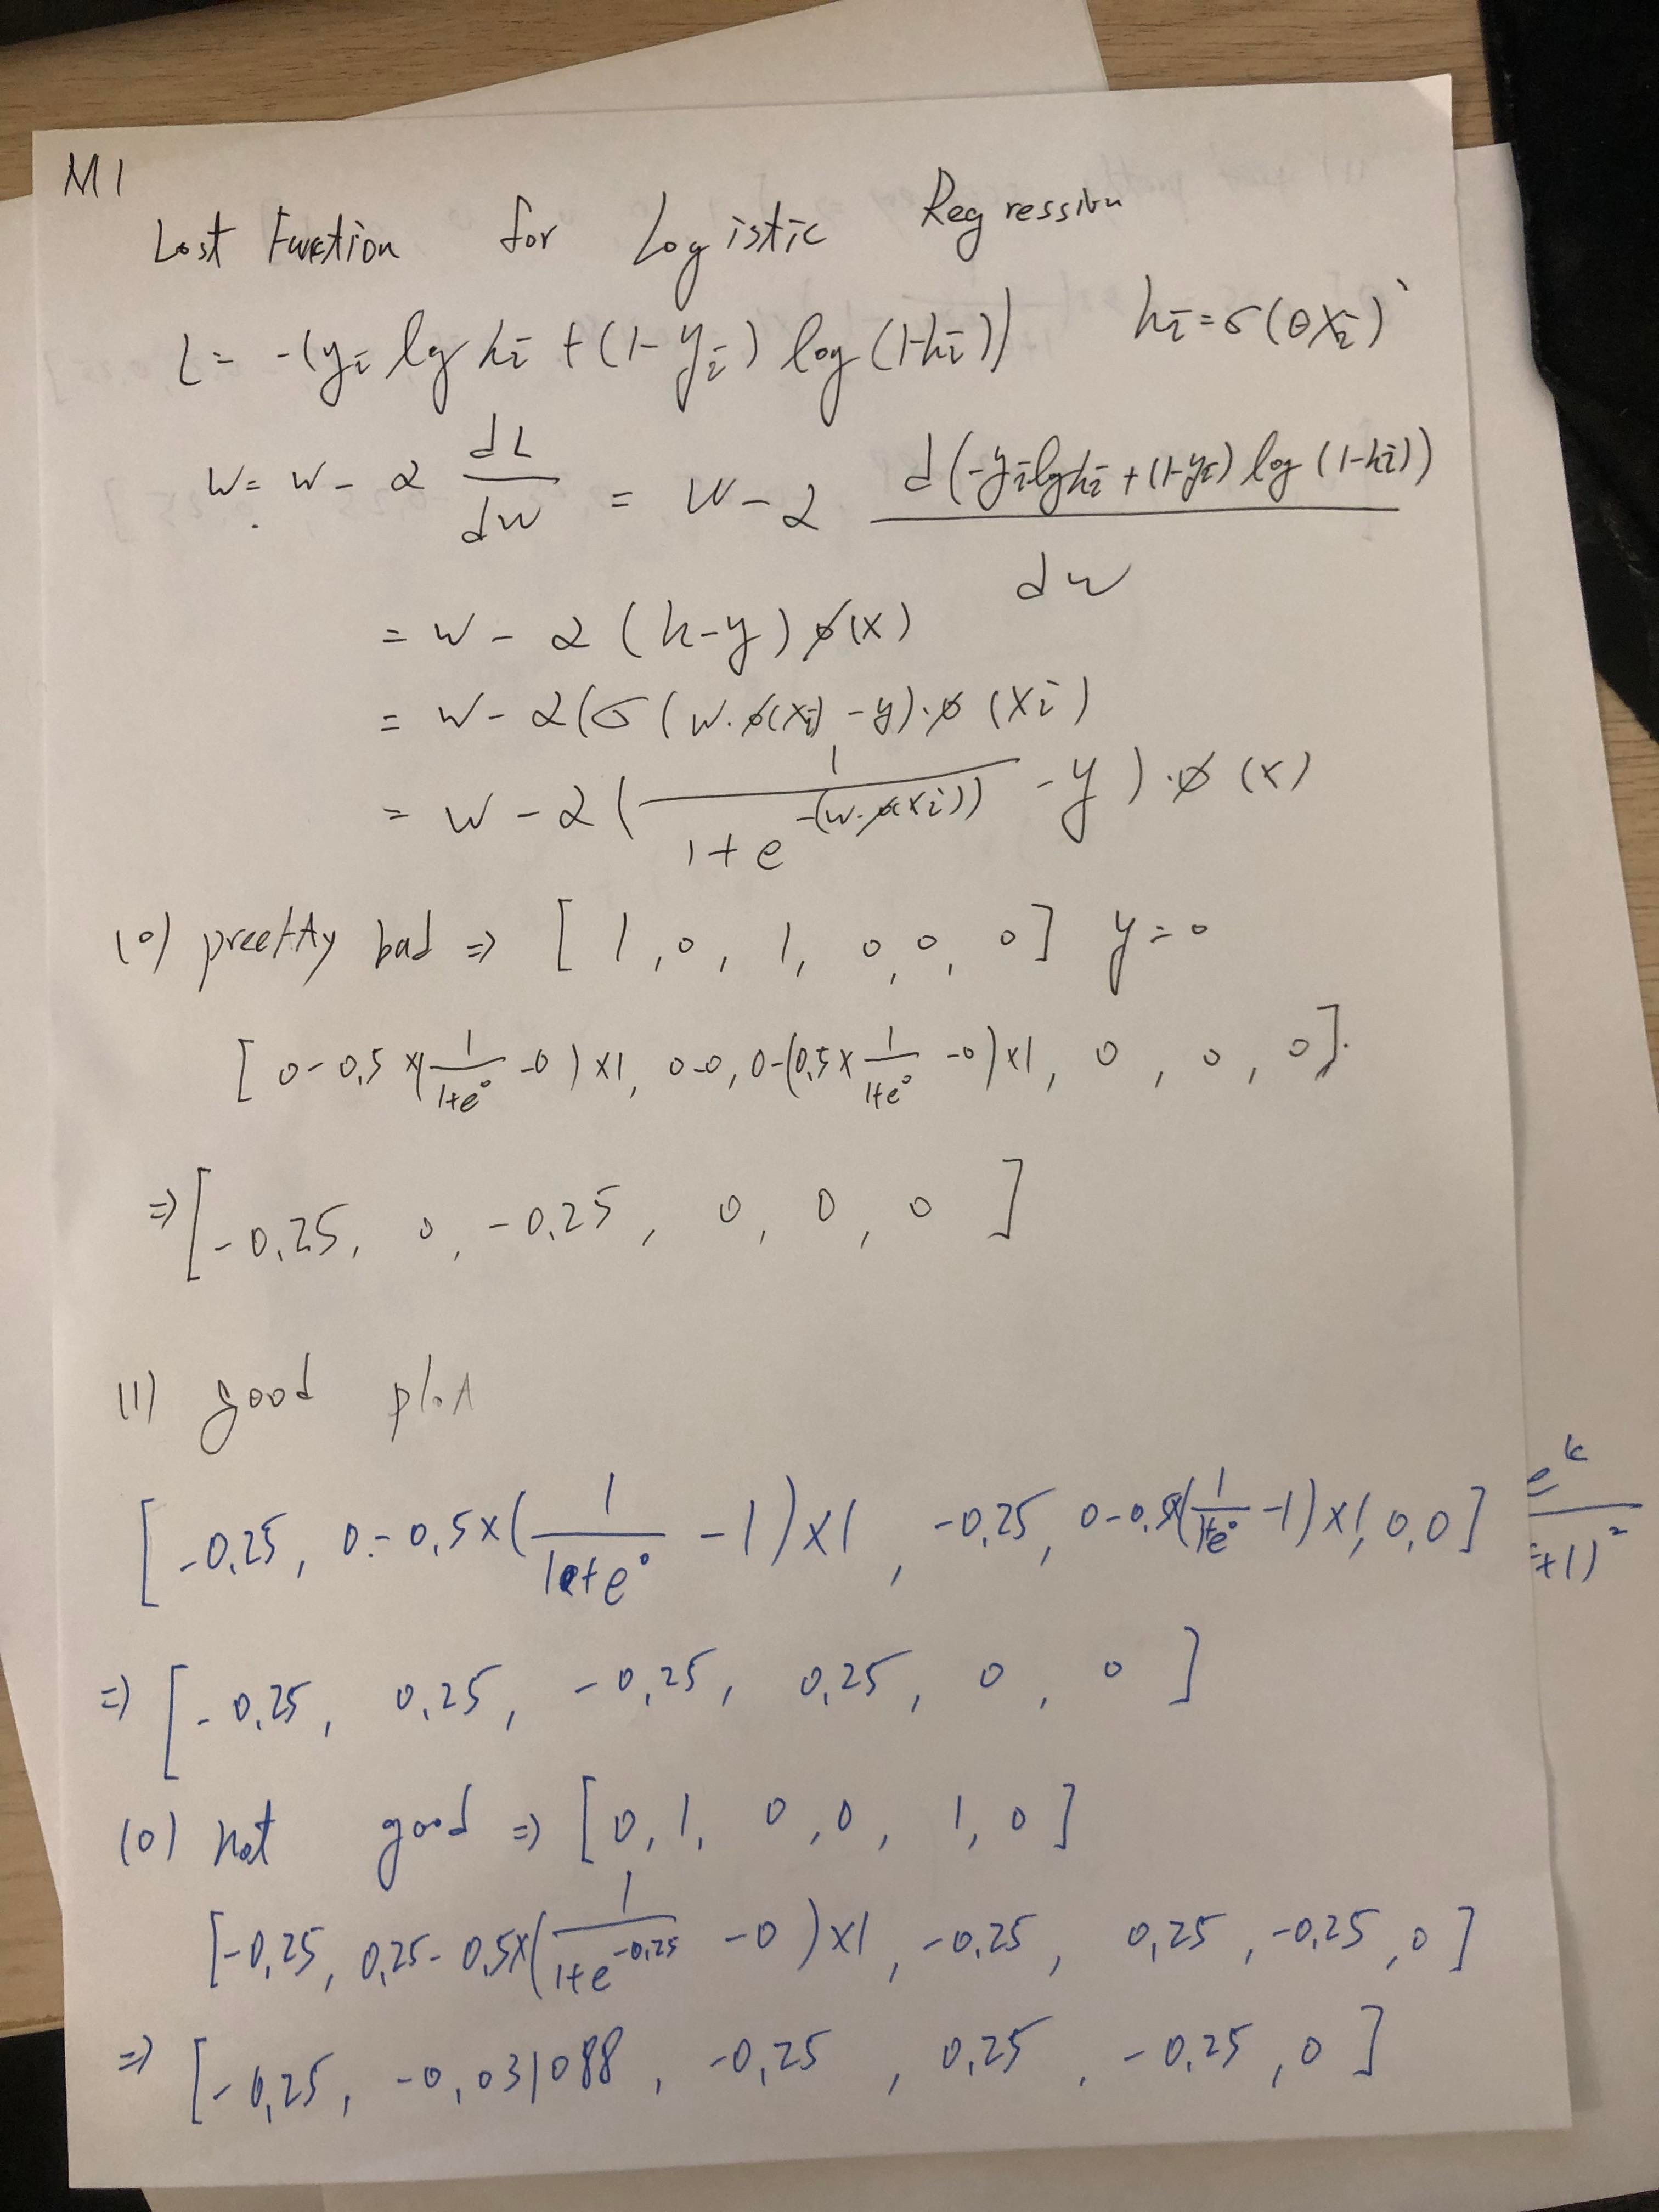 M1
Lost Function for Logistic Regression
L = -(yi lg hi + (1-yi) log (1-hi)) hi = σ(θXi)
W = W - α dL/dw = W - α d(-yi lg hi + (1-yi) log (1-hi))/dw
= W - α (h-y) ø(x)
= W - α(σ(w.ø(xi) - y).ø (xi)
= W - α(1/(1+e^-(w.ø(xi))) - y).ø (x)
(0) preetty bad => [1, 0, 1, 0, 0, 0] y = 0
[0-0,5×(1/(1+e^0) -0)×1, 0-0, 0-(0,5×1/(1+e^0) -0)×1, 0, 0, 0].
=> [-0,25, 0, -0,25, 0, 0, 0]
(1) good plot
[-0,25, 0-0,5×(1/(1+e^0) -1)×1, -0,25, 0-0,5×(1/(1+e^0) -1)×1, 0,0]
e^k
+1)^2
=> [-0,25, 0,25, -0,25, 0,25, 0, 0]
(0) not good => [0, 1, 0, 0, 1, 0]
[-0,25, 0,25-0,5×(1/(1+e^-0,25) -0)×1, -0,25, 0,25, -0,25, 0]
=> [-0,25, -0,031088, -0,25, 0,25, -0,25, 0]